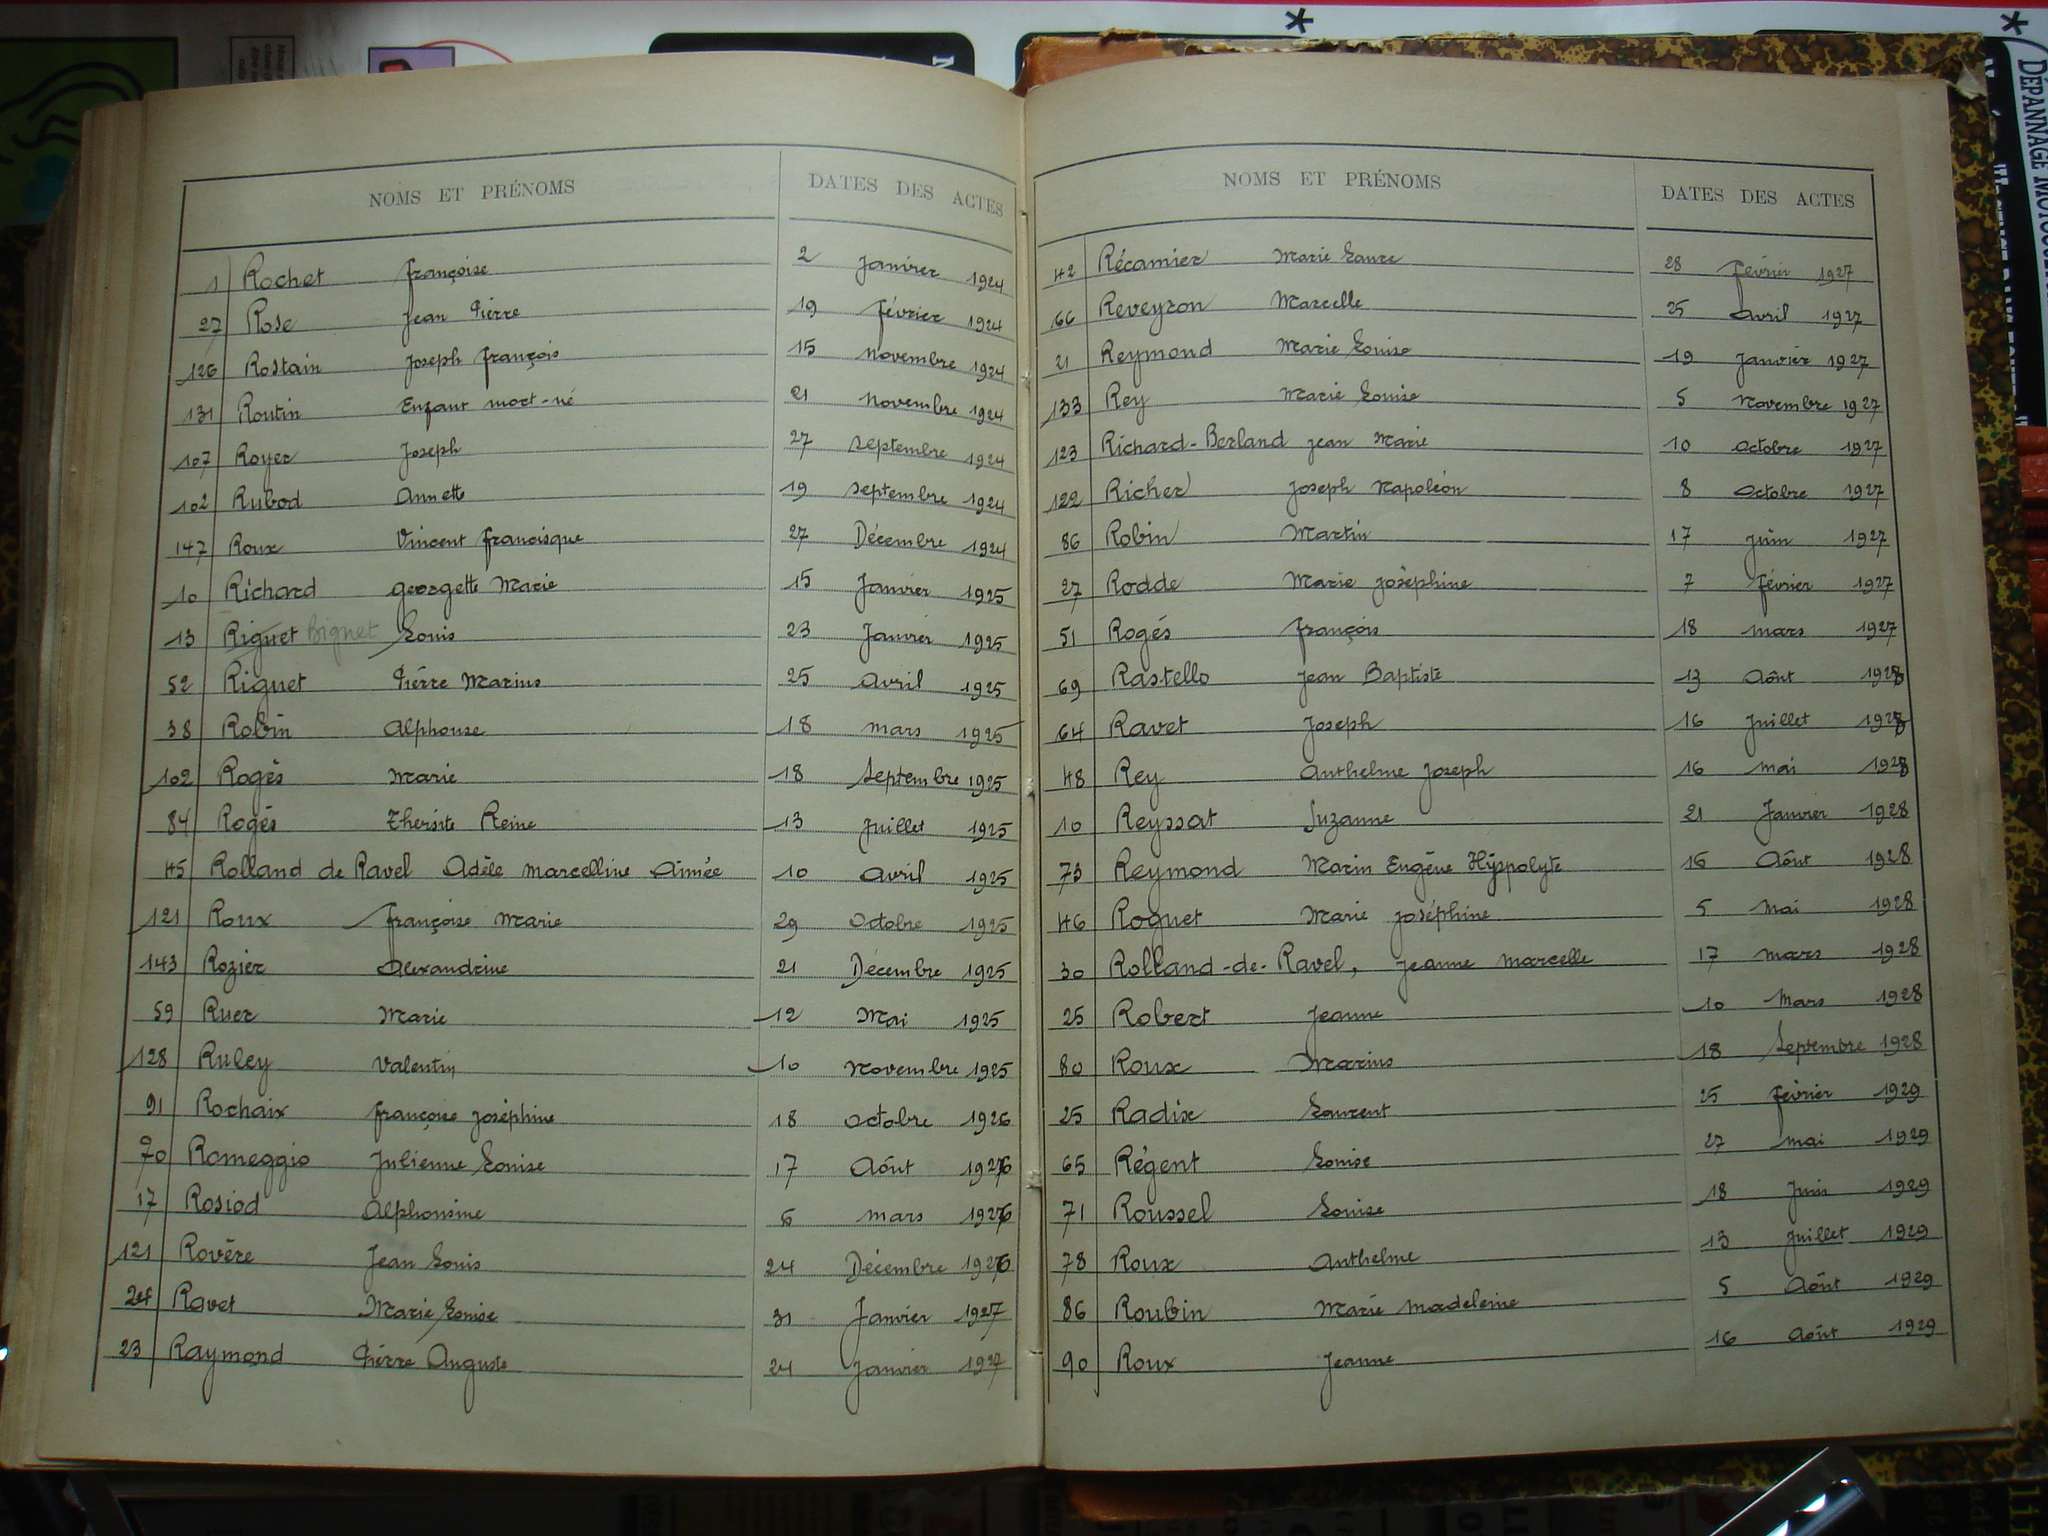 NOMS ET PRÉNOMS DATES DES ACTES
1 Rochet françoise 2 Janvier 1924
27 Rose Jean Pierre 19 février 1924
126 Rostain Joseph françois 15 Novembre 1924
131 Routin Enfant mort-né 21 Novembre 1924
107 Royer Joseph 27 Septembre 1924
102 Rubod Annette 19 Septembre 1924
147 Roux Vincent francisque 27 Décembre 1924
10 Richard georgette Marie 15 Janvier 1925
13 Riguet Biguet Louis 23 Janvier 1925
52 Riguet Pierre Marius 25 Avril 1925
38 Robin Alphonse 18 Mars 1925
102 Rogès Marie 18 Septembre 1925
84 Rogès Reine 13 Juillet 1925
45 Rolland de Ravel Adèle Marcelline Aimée 10 Avril 1925
121 Roux françoise Marie 29 Octobre 1925
143 Rozier Alexandrine 21 Décembre 1925
59 Ruer Marie 12 Mai 1925
128 Ruley Valentin 10 Novembre 1925
91 Rochaix françoise Joséphine 18 Octobre 1926
70 Romeggio Julienne Louise 17 Aôut 1926
17 Rosiod Alphonsine 6 Mars 1926
121 Rovère Jean Louis 24 Décembre 1926
Ravet Marie Louise 31 Janvier 1927
23 Raymond Pierre Auguste 24 Janvier 1927
NOMS ET PRÉNOMS DATES DES ACTES
42 Récamier Marie Laure 28 février 1927
66 Reveyron Marcelle 25 Avril 1927
21 Reymond Marie Louise 19 Janvier 1927
133 Rey Marie Louise 5 Novembre 1927
123 Richard-Berland Jean Marie 10 Octobre 1927
122 Richer Joseph Napoléon 8 Octobre 1927
86 Robin Martin 17 Juin 1927
27 Rodde Marie Joséphine 7 février 1927
51 Rogés françois 18 Mars 1927
69 Rastello Jean Baptiste 13 Aôut 1928
64 Ravet Joseph 16 Juillet 1928
48 Rey Anthelme Joseph 16 Mai 1928
10 Reyssat Suzanne 21 Janvier 1928
73 Reymond Marin Eugène Hyppolyte 16 Aôut 1928
46 Roguet Marie Joséphine 5 Mai 1928
30 Rolland-de-Ravel, Jeanne Marcelle 17 Mars 1928
25 Robert Jeanne 10 Mars 1928
80 Roux Marius 18 Septembre 1928
25 Radix Laurent 25 février 1929
65 Régent Louise 27 Mai 1929
71 Roussel Louise 18 Juin 1929
78 Roux Anthelme 13 Juillet 1929
86 Roubin Marie Madeleine 5 Aôut 1929
90 Roux Jeanne 16 Aôut 1929
DÉPANNAGE